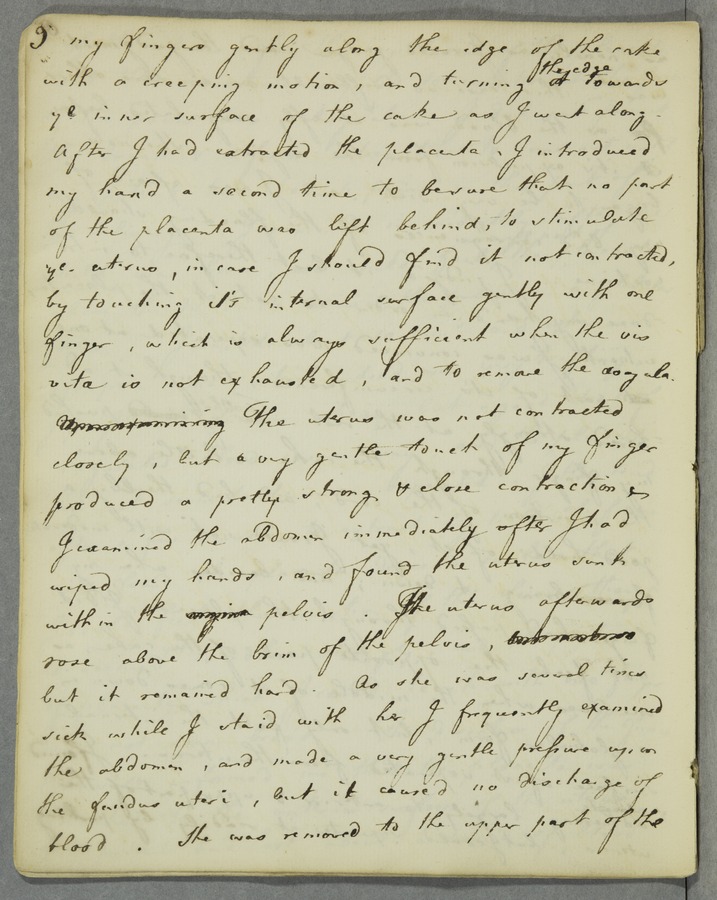 9
my fingers gently along the edge of the cake
with a creeping motion, and turning the edge towards
ye inner surface of the cake as I went along.
After I had extracted the placenta, I introduced
my hand a second time to be sure that no part
of the placenta was left behind, to stimulate
ye uterus, in case I should find it not contracted,
by touching it's internal surface gently with one
finger, which is always sufficient when the vis
vitæ is not exhausted, and to remove the coagula.
The uterus was not contracted
closely, but a very gentle touch of my finger
produced a pretty strong & close contraction
I examined the abdomen immediately after I had
wiped my hands, and found the uterus sunk
within the vagina pelvis. The uterus afterwards
rose above the brim of the pelvis,
but it remained hard. As she was several times
sick while I staid with her I frequently examined
the abdomen, and made a very gentle pressure upon
the fundus uteri, but it caused no discharge of
blood. She was removed to the upper part of the